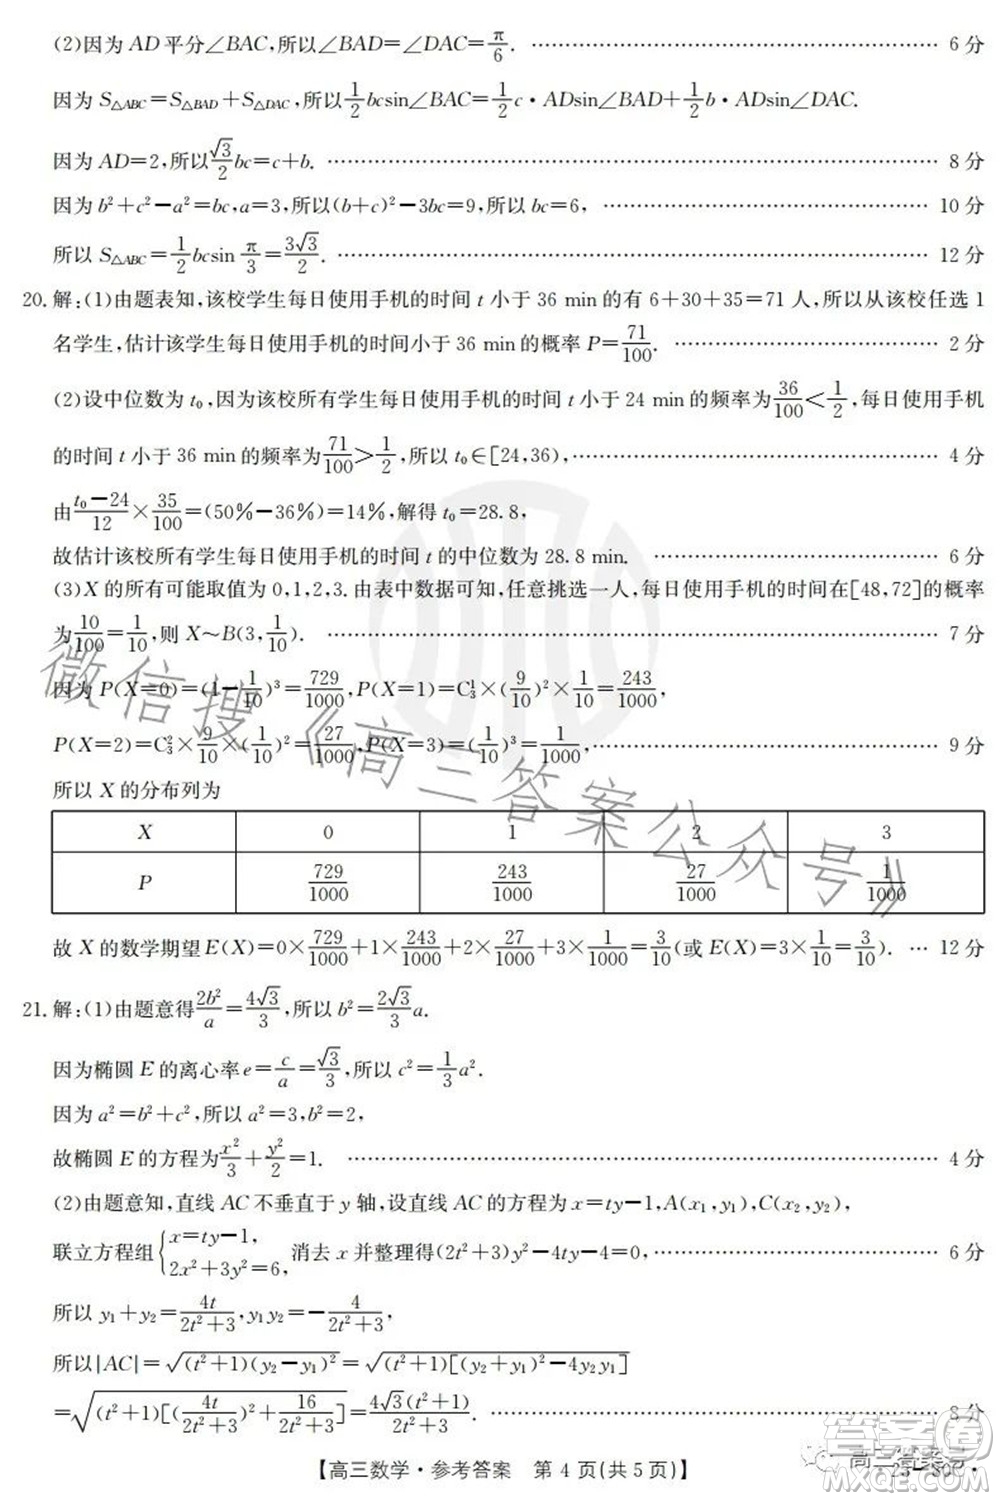 (2)因为 AD 平分∠BAC,所以∠BAD=∠DAC=π/6. ………… 6 分
因为 S△ABC=S△BAD+S△DAC,所以1/2bcsin∠BAC=1/2c·ADsin∠BAD+1/2b·ADsin∠DAC.
因为 AD=2,所以√3/2bc=c+b. ………… 8 分
因为 b²+c²-a²=bc,a=3,所以(b+c)²-3bc=9,所以 bc=6, ………… 10 分
所以 S△ABC=1/2bcsin π/3=3√3/2. ………… 12 分
20.解:(1)由题表知,该校学生每日使用手机的时间 t 小于 36 min 的有 6+30+35=71 人,所以从该校任选 1
名学生,估计该学生每日使用手机的时间小于 36 min 的概率 P=71/100. ………… 2 分
(2)设中位数为 t₀,因为该校所有学生每日使用手机的时间 t 小于 24 min 的频率为36/100<1/2,每日使用手机
的时间 t 小于 36 min 的频率为71/100>1/2,所以 t₀∈[24,36), ………… 4 分
由(t₀-24)/12×35/100=(50%-36%)=14%,解得 t₀=28.8,
故估计该校所有学生每日使用手机的时间 t 的中位数为 28.8 min. ………… 6 分
(3)X 的所有可能取值为 0,1,2,3.由表中数据可知,任意挑选一人,每日使用手机的时间在[48,72]的概率
为10/100=1/10,则 X~B(3,1/10). ………… 7 分
因为 P(X=0)=(1-1/10)³=729/1000,P(X=1)=C₃¹×(9/10)²×1/10=243/1000,
P(X=2)=C₃²×9/10×(1/10)²=27/1000,P(X=3)=(1/10)³=1/1000, ………… 9 分
所以 X 的分布列为
X 0 1 2 3
P 729/1000 243/1000 27/1000 1/1000
故 X 的数学期望 E(X)=0×729/1000+1×243/1000+2×27/1000+3×1/1000=3/10(或 E(X)=3×1/10=3/10). … 12 分
21.解:(1)由题意得2b²/a=4√3/3,所以 b²=2√3/3a.
因为椭圆 E 的离心率 e=c/a=√3/3,所以 c²=1/3a².
因为 a²=b²+c²,所以 a²=3,b²=2,
故椭圆 E 的方程为x²/3+y²/2=1. ………… 4 分
(2)由题意知,直线 AC 不垂直于 y 轴,设直线 AC 的方程为 x=ty-1,A(x₁,y₁),C(x₂,y₂),
联立方程组{x=ty-1, 2x²+3y²=6, 消去 x 并整理得(2t²+3)y²-4ty-4=0, ………… 6 分
所以 y₁+y₂=4t/(2t²+3),y₁y₂=-4/(2t²+3),
所以|AC|=√((t²+1)(y₂-y₁)²)=√((t²+1)[(y₂+y₁)²-4y₂y₁])
=√((t²+1)[(4t/(2t²+3))²+16/(2t²+3)])=4√3(t²+1)/(2t²+3). ………… 8 分
【高三数学·参考答案 第 4 页(共 5 页)】
微信搜《高三答案公众号》
高三答案号
答案圈